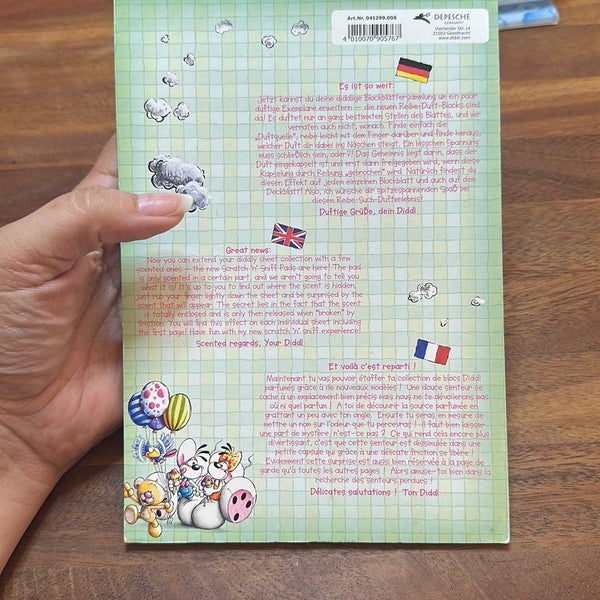 Art.Nr. 041299.006
4 010070 905767
DEPESCHE
GERMANY
Vierlander Str. 14
21502 Geesthacht
www.diddl.com
Es ist so weit:
Jetzt kannst du deine diddlige Blockblättersammlung um ein paar
duftige Exemplare erweitern – die neuen Reibe-Duft-Blocks sind
da! Es duftet nur an ganz bestimmten Stellen des Blattes, und wir
verraten auch nicht, wonach. Finde einfach die
„Duftquelle", reibe leicht mit dem Finger darüber und finde heraus,
welcher Duft dir dabei ins Näschen steigt. Ein bisschen Spannung
muss schließlich sein, oder?! Das Geheimnis liegt darin, dass der
Duft eingekapselt ist und erst dann freigegeben wird, wenn diese
Kapselung durch Reibung „gebrochen" wird. Natürlich findest du
diesen Effekt auf jedem einzelnen Blockblatt und auch auf dem
Deckblatt! Also, ich wünsche dir spitzespannenden Spaß bei
diesem Reibe-Such-Dufterlebnis!
Duftige Grüße, dein Diddl
Great news:
Now you can extend your diddly sheet collection with a few
scented ones – the new Scratch 'n' Sniff Pads are here! The pad
is only scented in a certain part, and we aren't going to tell you
what it is! It's up to you to find out where the scent is hidden,
just rub your finger lightly down the sheet and be surprised by the
scent that will appear. The secret lies in the fact that the scent
is totally enclosed and is only then released when "broken" by
friction. You will find this effect on each individual sheet including
the first page! Have fun with my new scratch 'n' sniff experience!
Scented regards, Your Diddl
Et voilà c'est reparti !
Maintenant tu vas pouvoir étoffer ta collection de blocs Diddl
parfumés grâce à de nouveaux modèles ! Une douce senteur se
cache à un emplacement bien précis mais nous ne te dévoilerons pas
où ni quel parfum ! A toi de découvrir la source parfumée en
grattant un peu avec ton ongle. Ensuite tu seras en mesure de
mettre un nom sur l'odeur que tu percevras ! Il faut bien laisser
une part de mystère, n'est-ce pas ? Ce qui rend cela encore plus
divertissant, c'est que cette senteur est dissimulée dans une
petite capsule qui grâce à une délicate friction se libère !
Evidemment cette surprise est aussi bien réservée à la page de
garde qu'à toutes les autres pages ! Alors amuse-toi bien dans la
recherche des senteurs perdues !
Délicates salutations ! Ton Diddl